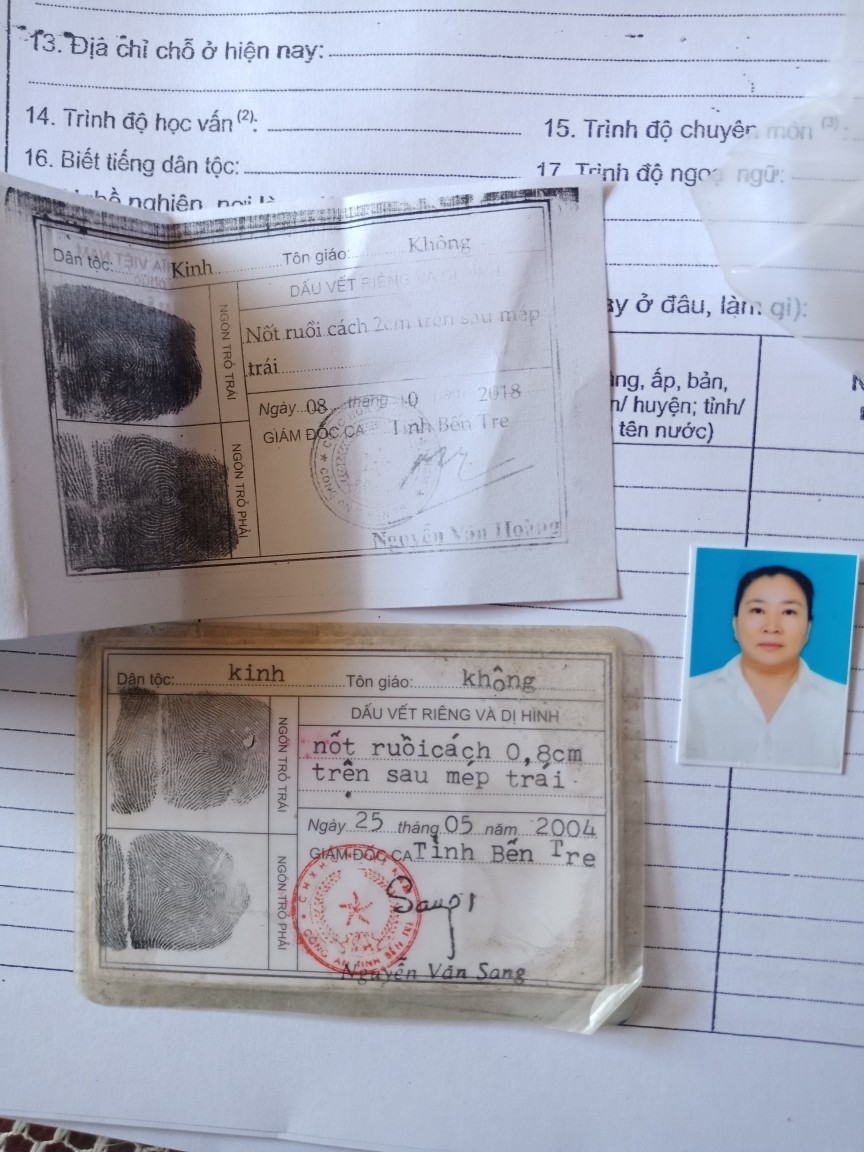 13. Địa chỉ chỗ ở hiện nay:
14. Trình độ học vấn (2):
15. Trình độ chuyên môn (3):
16. Biết tiếng dân tộc:
17. Trình độ ngoại ngữ:
ay ở đâu, làm gì):
ấp, bản,
n/ huyện; tỉnh/
tên nước)
Dân tộc: Kinh Tôn giáo: Không
DẤU VẾT RIÊNG VÀ DỊ HÌNH
NGÓN TRỎ TRÁI
Nốt ruồi cách 2cm trên sau mép
trái
Ngày 08 tháng 10 năm 2018
GIÁM ĐỐC CA Tỉnh Bến Tre
NGÓN TRỎ PHẢI
Nguyễn Văn Hoàng
Dân tộc: kinh Tôn giáo: không
DẤU VẾT RIÊNG VÀ DỊ HÌNH
NGÓN TRỎ TRÁI
nốt ruồicách 0,8cm
trên sau mép trái
Ngày 25 tháng 05 năm 2004
GIÁM ĐỐC CA Tỉnh Bến Tre
NGÓN TRỎ PHẢI
CÔNG AN TỈNH BẾN TRE
Nguyễn Văn Sang